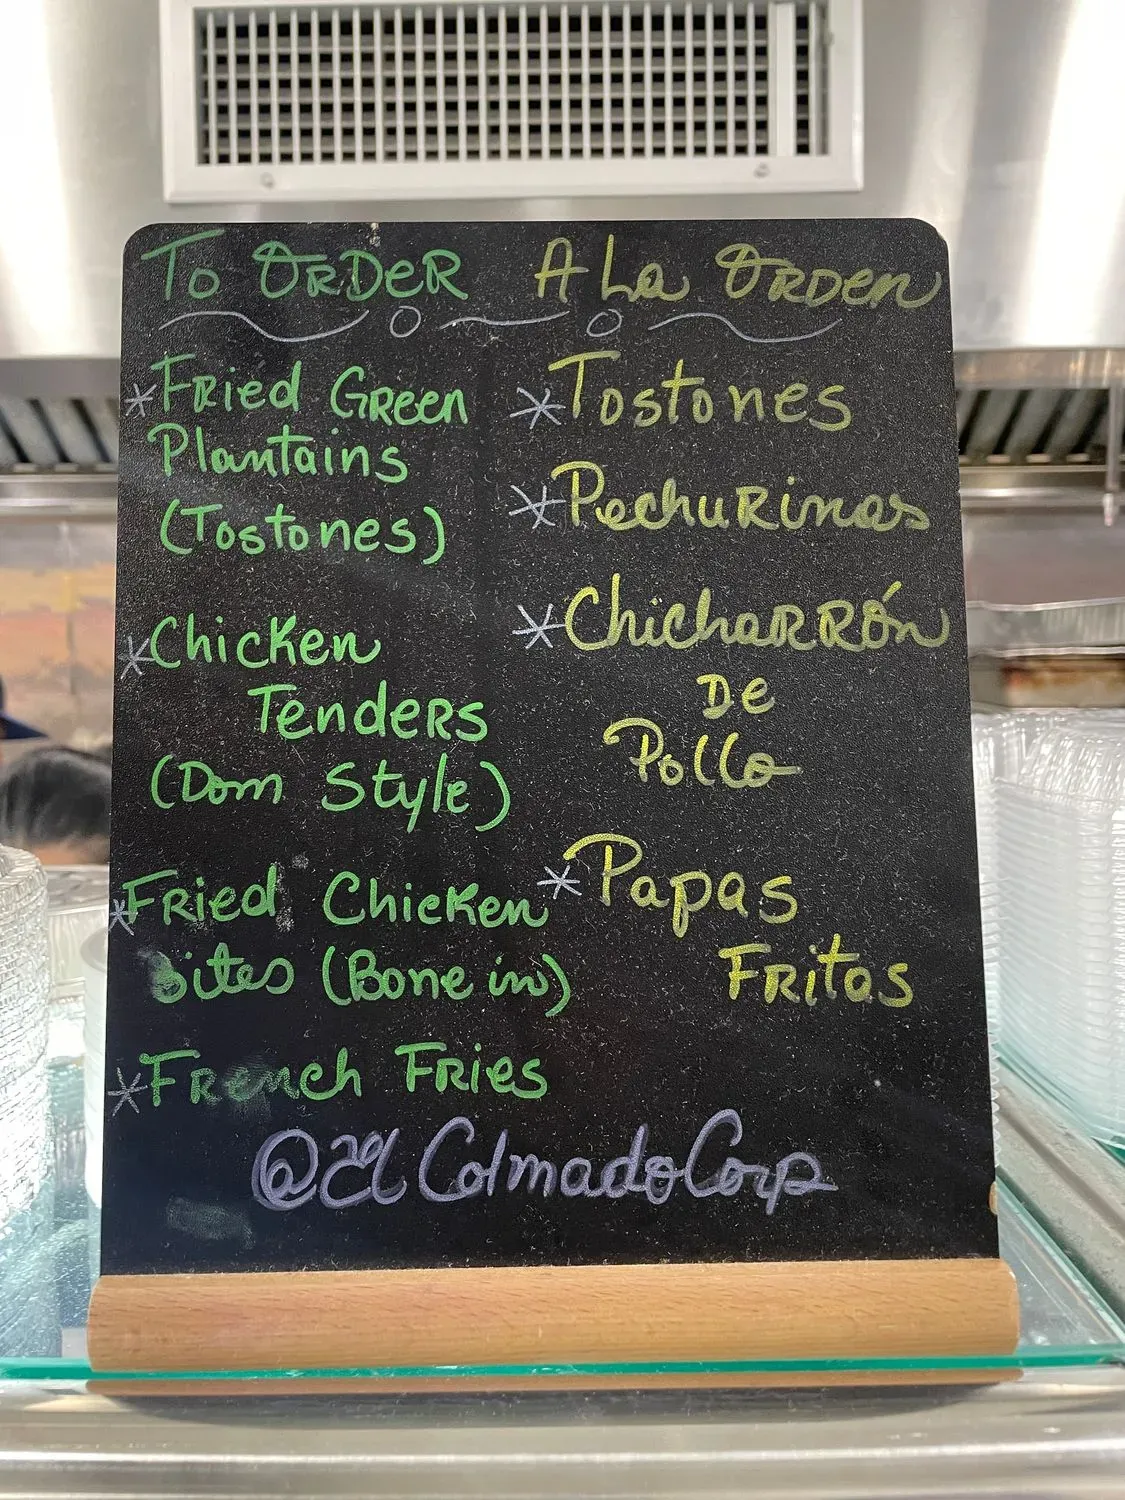 To Order
* Fried Green
Plantains
(Tostones)
* Chicken
Tenders
(Dom Style)
* Fried Chicken
Bites (Bone in)
* French Fries
A La Orden
* Tostones
* Pechurinas
* Chicharrón
De
Pollo
* Papas
Fritas
@El Colmado Corp